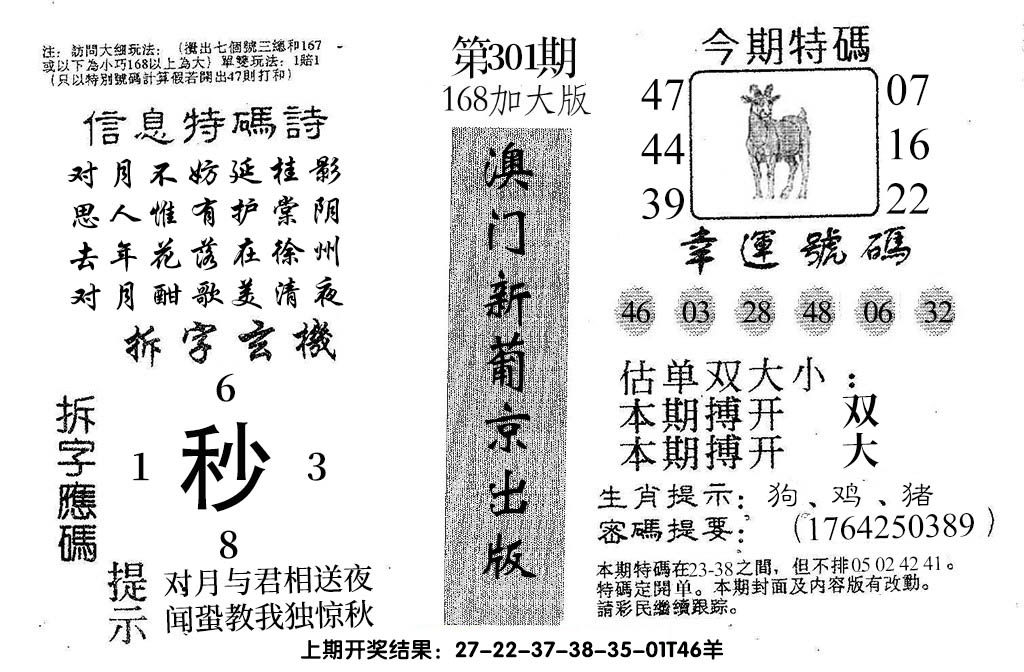 注：訪問大細玩法：（攪出七個號三總和167
或以下為小巧168以上為大）單雙玩法：1賠1
（只以特別號碼計算假若開出47則打和）
信息特碼詩
对月不妨延桂影
思人惟有护棠阴
去年花落在徐州
对月酣歌美清夜
拆字玄機
拆字應碼
6
1 秒 3
8
提示
对月与君相送夜
闻蛩教我独惊秋
第301期
168加大版
澳门新葡京出版
今期特碼
47 07
44 16
39 22
幸運號碼
46 03 28 48 06 32
估单双大小：
本期搏开 双
本期搏开 大
生肖提示：狗、鸡、猪
密碼提要：（1764250389）
本期特碼在23-38之間，但不排05 02 42 41。
特碼定開单。本期封面及内容版有改動。
請彩民繼續跟踪。
上期开奖结果：27-22-37-38-35-01T46羊